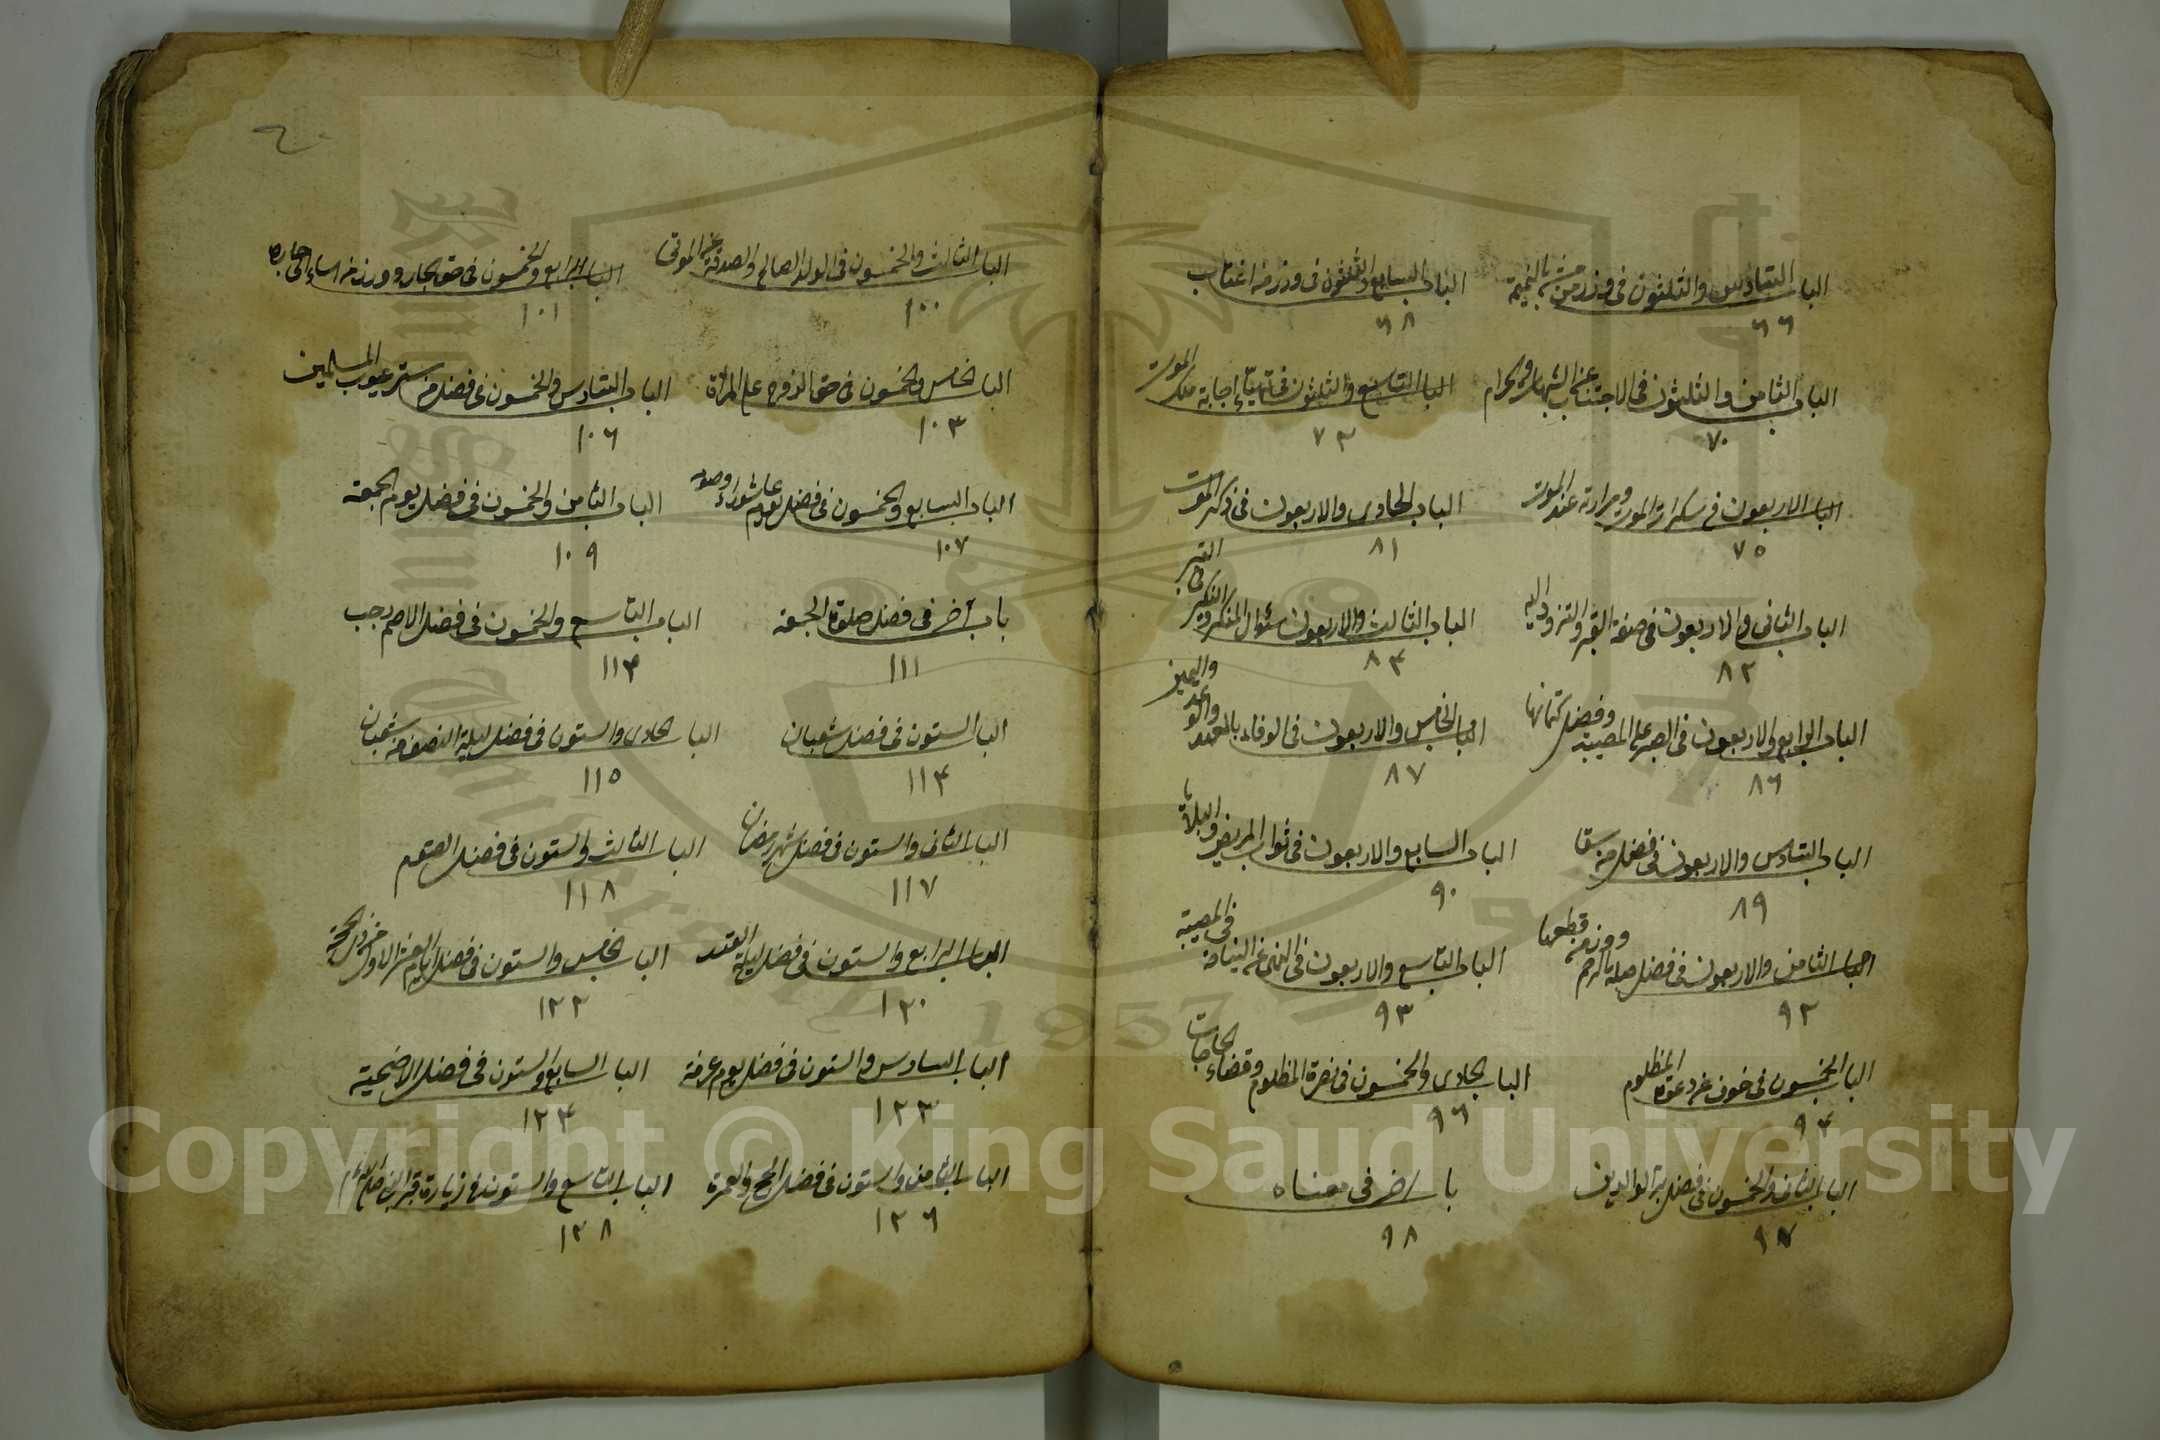 الباب السادس والثلثون فى وزر من مشى بالنميمة
٦٦
الباب السابع والثلثون فى وزر من اغتاب
٦٨
الباب الثامن والثلثون فى الاجتناب عن الشبهات والحرام
٧٠
الباب التاسع والثلثون فى تهيّئ إجابة ملك الموت
٧٣
الباب الاربعون فى سكرات الموت ومرارته عند الموت
٧٥
الباب الحادى والاربعون فى ذكر الموت
٨١
الباب الثانى والاربعون فى صفة القبر والتزود اليه
٨٢
الباب الثالث والاربعون سئوال المنكر والنكير فى القبر
٨٤
الباب الرابع والاربعون فى الصبر على المصيبة وفضل كتمانها
٨٦
الباب الخامس والاربعون فى الوفاء بالعهد والوعد واليمين
٨٧
الباب السادس والاربعون فى فضل من سقا
٨٩
الباب السابع والاربعون فى ثواب المريض والبلايا
٩٠
الباب الثامن والاربعون فى فضل صلة الرحم ووزر من قطعها
٩٢
الباب التاسع والاربعون فى النهى عن النياحة فى المصيبة
٩٣
الباب الخمسون فى خوف عن دعوة المظلوم
٩٤
الباب الحادى والخمسون فى نصرة المظلوم وقضاء الحاجات
٩٦
الباب الثانى والخمسون فى فضل بر الوالدين
٩٧
باب اخر فى معناه
٩٨
٢٠
الباب الثالث والخمسون فى الولد الصالح والصدقة عن الموتى
١٠٠
الباب الرابع والخمسون فى حق الجار ووزر من اساء الى جاره
١٠١
الباب الخامس والخمسون فى حق الزوج على المرأة
١٠٣
الباب السادس والخمسون فى فضل من ستر عيوب المسلمين
١٠٦
الباب السابع والخمسون فى فضل يوم عاشوراء وصومه
١٠٧
الباب الثامن والخمسون فى فضل يوم الجمعة
١٠٩
باب آخر فى فضل صلوة الجمعة
١١١
الباب التاسع والخمسون فى فضل الاصم رجب
١١٣
الباب الستون فى فضل شعبان
١١٤
الباب الحادى والستون فى فضل ليلة النصف من شعبان
١١٥
الباب الثانى والستون فى فضل شهر رمضان
١١٧
الباب الثالث والستون فى فضل الصوم
١١٨
الباب الرابع والستون فى فضل ليلة القدر
١٢٠
الباب الخامس والستون فى فضل ايام العشر الاول من ذى الحجة
١٢٢
الباب السادس والستون فى فضل يوم عرفة
١٢٣
الباب السابع والستون فى فضل الاضحية
١٢٤
الباب الثامن والستون فى فضل الحج والعمرة
١٢٦
الباب التاسع والستون فى زيارة قبر النبى
١٢٨
King Saud University
1957
Copyright © King Saud University